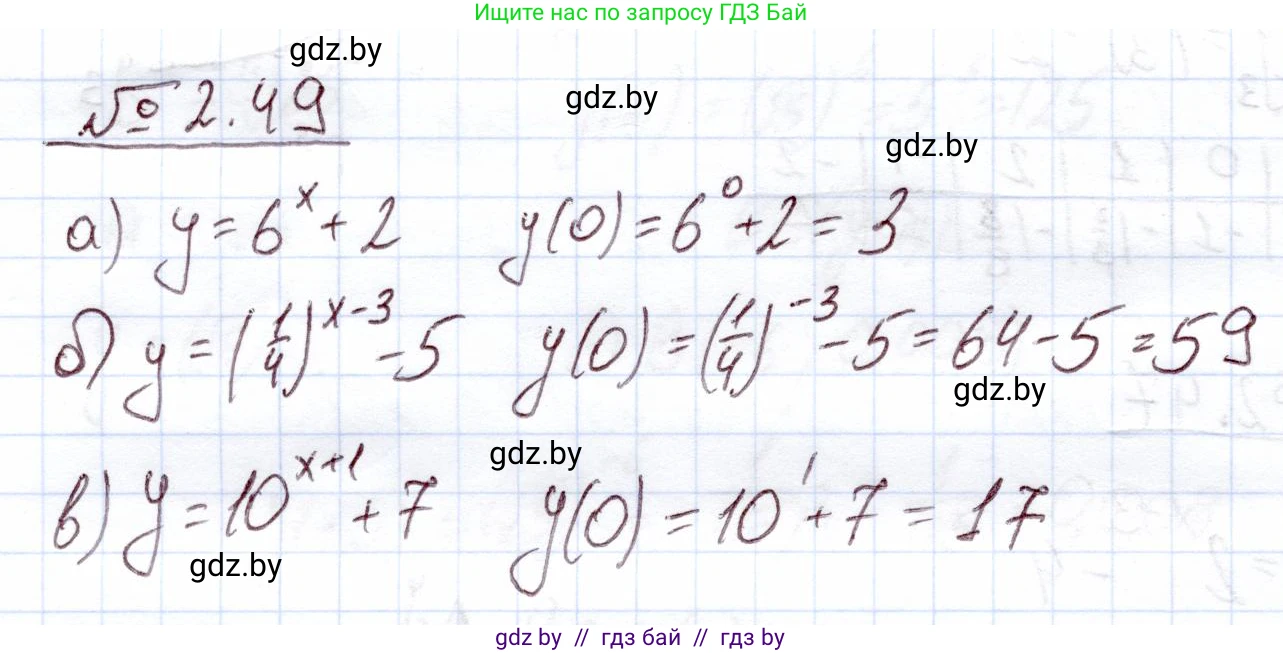 Ищите нас по запросу ГДЗ Бай
gdz.by
№ 2.49
gdz.by
gdz.by
а) y = 6^x + 2 y(0) = 6^0 + 2 = 3
б) y = (1/4)^(x-3) - 5 y(0) = (1/4)^(-3) - 5 = 64 - 5 = 59
gdz.by
gdz.by
в) y = 10^(x+1) + 7 y(0) = 10^1 + 7 = 17
gdz.by
gdz by // гдз бай // гдз by